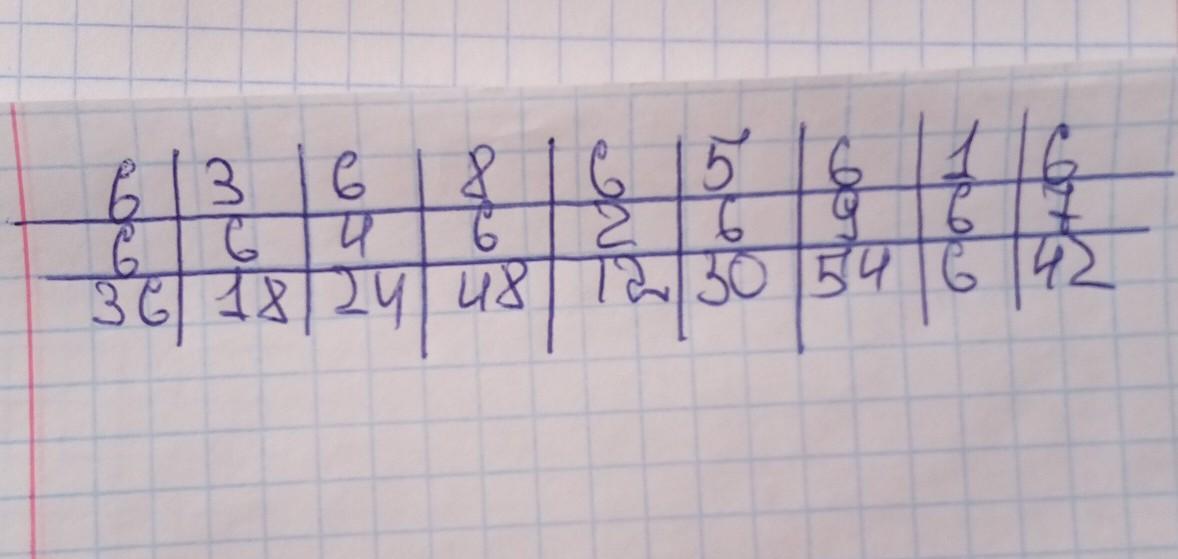 6 3 6 8 6 5 6 1 6
6 6 4 6 2 6 9 6 7
36 18 24 48 12 30 54 6 42